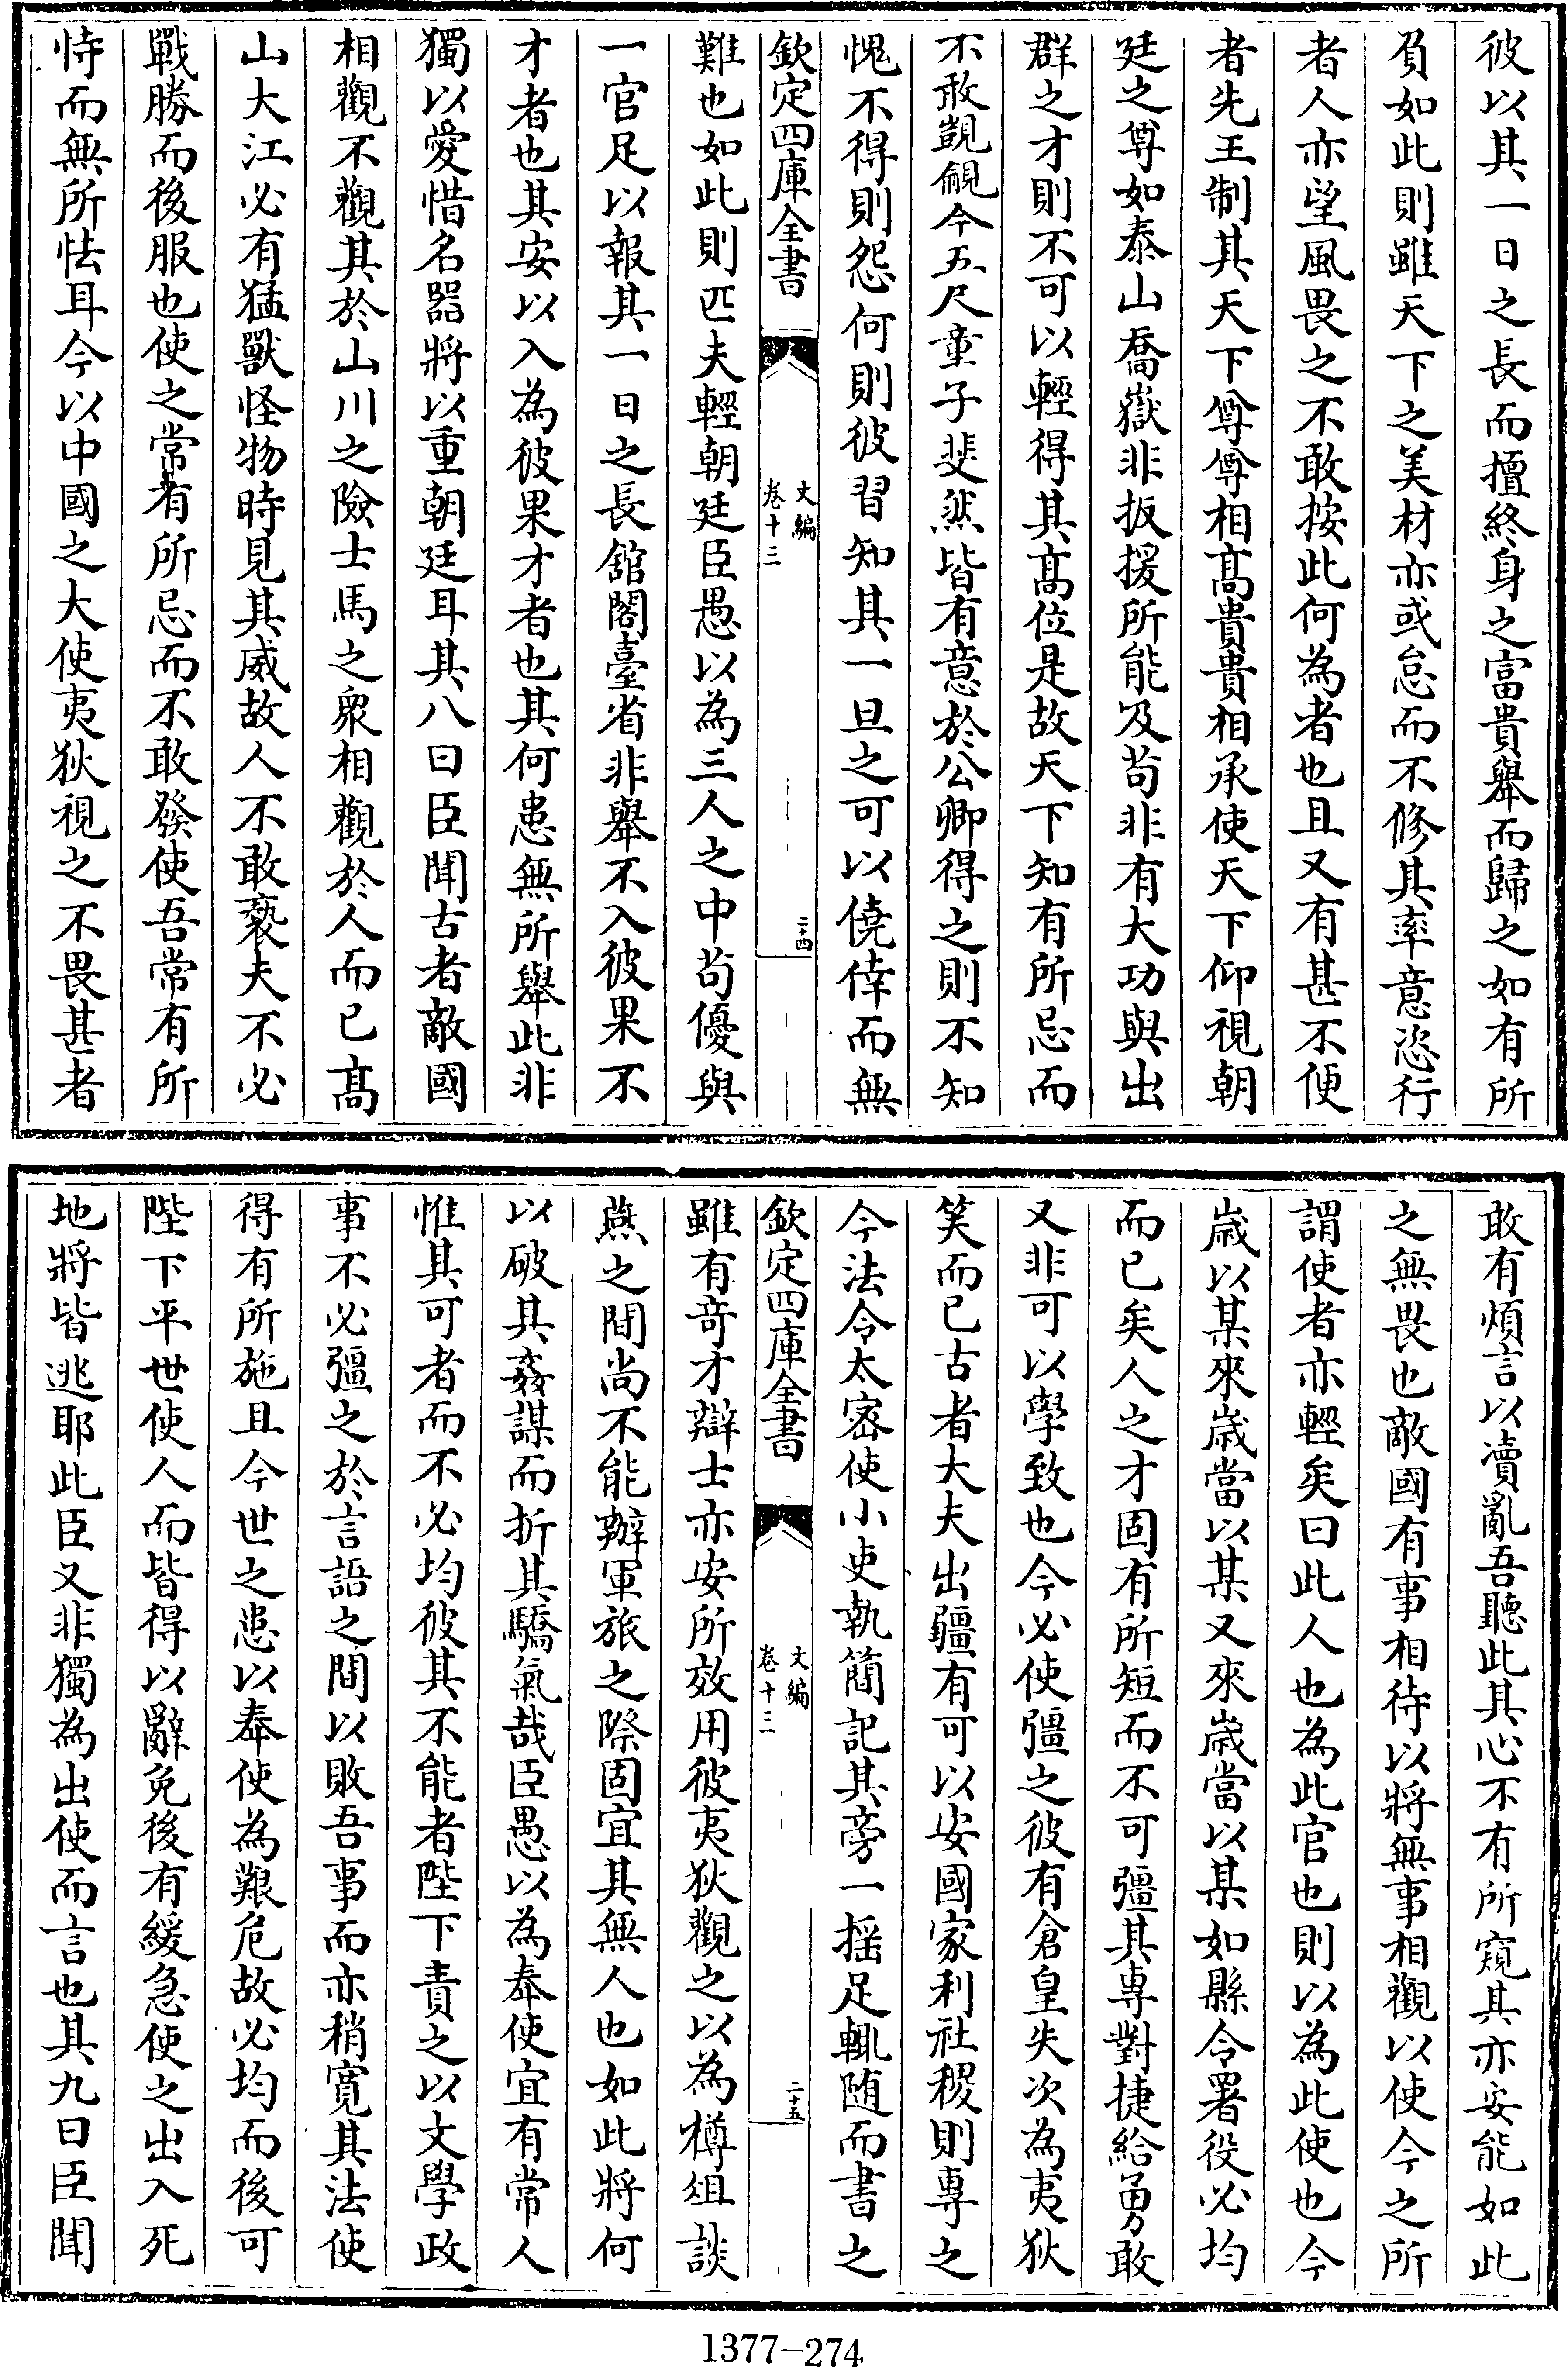 彼以其一日之長而擅終身之富貴舉而歸之如有所
負如此則雖天下之美材亦或怠而不修其率意恣行
者人亦望風畏之不敢按此何為者也且又有甚不便
者先王制其天下尊尊相髙貴貴相承使天下仰視朝
廷之尊如泰山喬嶽非扳援所能及苟非有大功與出
群之才則不可以輕得其髙位是故天下知有所忌而
不敢覬覦今五尺童子斐然皆有意於公卿得之則不知
愧不得則怨何則彼習知其一旦之可以僥倖而無
欽定四庫全書
文編
卷十三
二十四
難也如此則匹夫輕朝廷臣愚以為三人之中苟優與
一官足以報其一日之長舘閣臺省非舉不入彼果不
才者也其安以入為彼果才者也其何患無所舉此非
獨以愛惜名器將以重朝廷耳其八曰臣聞古者敵國
相觀不觀其於山川之險士馬之衆相觀於人而已髙
山大江必有猛獸怪物時見其威故人不敢褻夫不必
戰勝而後服也使之常有所忌而不敢發使吾常有所
恃而無所怯耳今以中國之大使夷狄視之不畏甚者
敢有煩言以瀆亂吾聽此其心不有所窺其亦安能如此
之無畏也敵國有事相待以將無事相觀以使今之所
謂使者亦輕矣曰此人也為此官也則以為此使也今
歲以某來歲當以某又來歲當以某如縣令署役必均
而已矣人之才固有所短而不可彊其專對捷給勇敢
又非可以學致也今必使彊之彼有倉皇失次為夷狄
笑而已古者大夫出疆有可以安國家利社稷則專之
今法令太密使小吏執簡記其旁一摇足輒随而書之
欽定四庫全書
文編
卷十三
二十五
雖有奇才辯士亦安所效用彼夷狄觀之以為樽俎談
燕之間尚不能辦軍旅之際固宜其無人也如此將何
以破其姦謀而折其驕氣哉臣愚以為奉使宜有常人
惟其可者而不必均彼其不能者陛下責之以文學政
事不必彊之於言語之間以敗吾事而亦稍寛其法使
得有所施且今世之患以奉使為艱危故必均而後可
陛下平世使人而皆得以辭免後有緩急使之出入死
地將皆逃耶此臣又非獨為出使而言也其九曰臣聞
1377-274